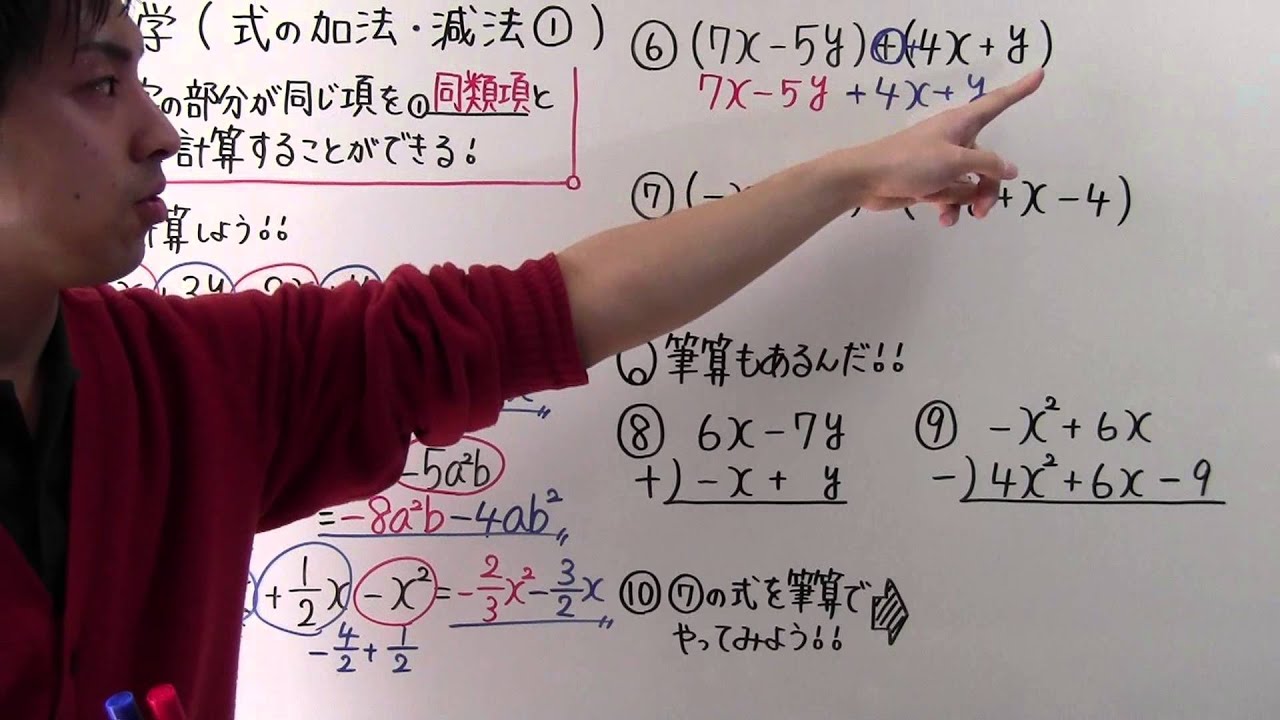 学(式の加法・減法①)
の部分が同じ項を①同類項と
計算することができる!
算しよう!!
+3y
-5a²b
=-8a²b-4ab²
+1/2x -x² = -2/3x²-3/2x
-4/2+1/2
⑥(7x-5y)+(4x+y)
7x-5y+4x+y
⑦(- +x-4)
筆算もあるんだ!!
⑧ 6x-7y
+)-x+ y
⑨ -x²+6x
-)4x²+6x-9
⑩⑦の式を筆算で
やってみよう!!